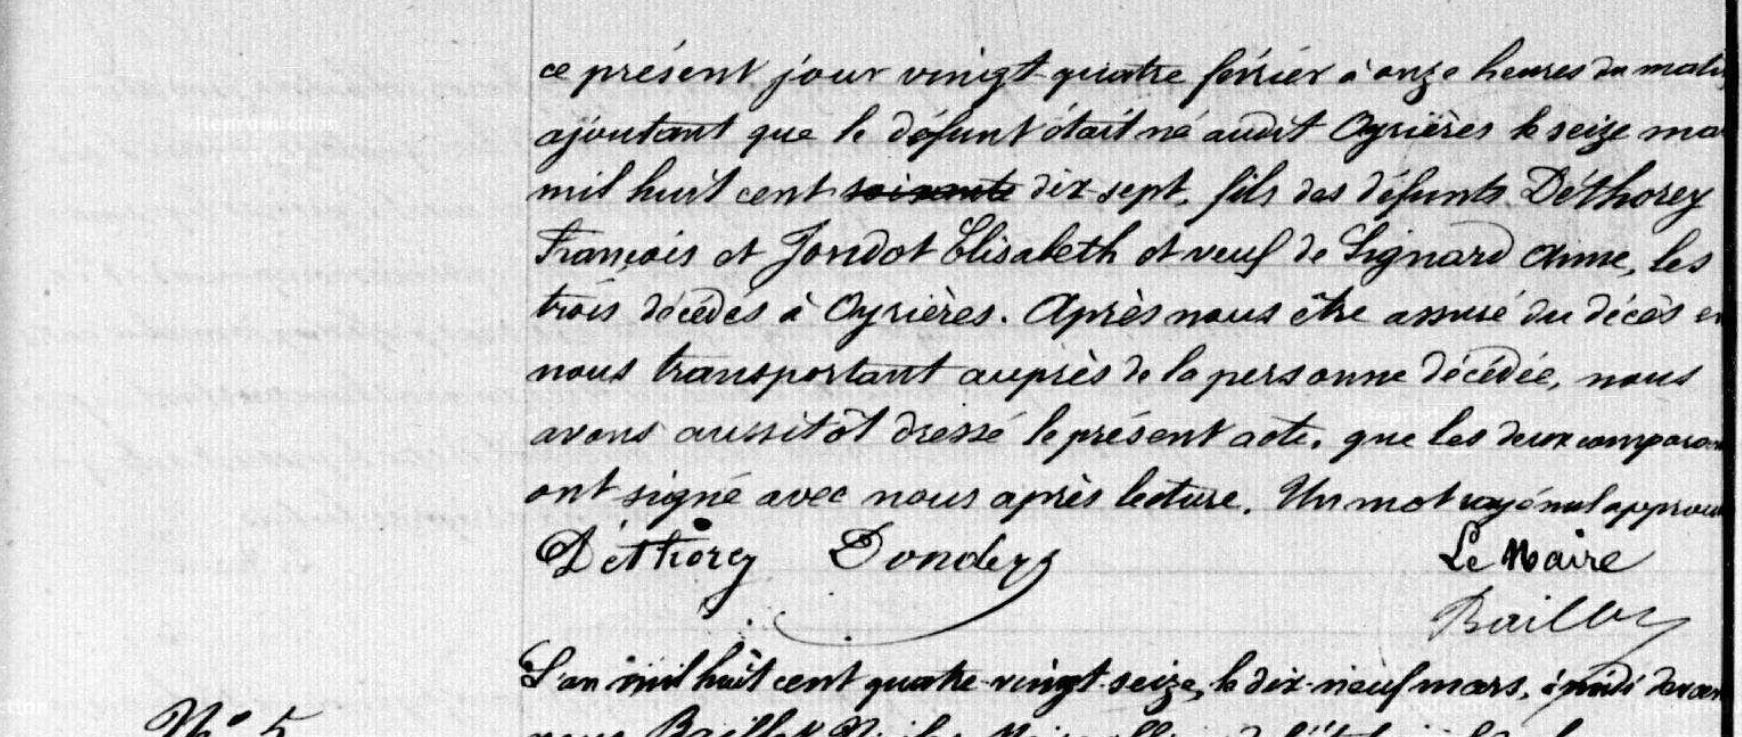 ce présent jour vingt-quatre février à onze heures du matin
ajoutant que le défunt était né audit Oyrières le seize ma
mil huit cent soixante dix-sept, fils des défunts Déthorey
François et Jondot Elisabeth et veuf de Signard Anne, les
trois décédés à Oyrières. Après nous être assuré du décès en
nous transportant auprès de la personne décédée, nous
avons aussitôt dressé le présent acte, que les deux comparan
ont signé avec nous après lecture. Un mot rayé nul approuv
Déthorey Donders Le Maire
Baillet
L'an mil huit cent quatre-vingt-seize, le dix-neuf mars, à midi devan
N° 5